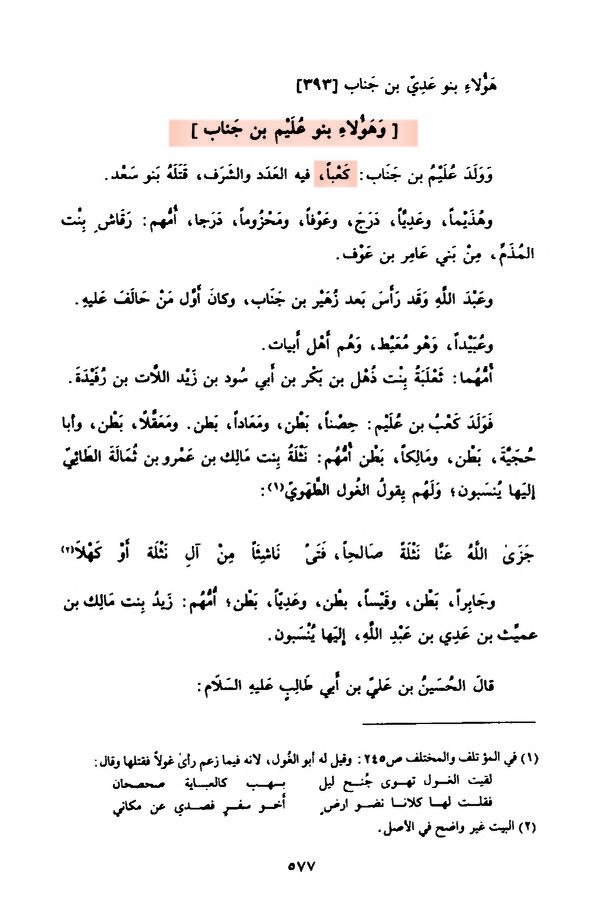 هَؤُلاءِ بنو عَدِيّ بن جَناب [٣٩٣]
[ وَهَؤُلاءِ بنو عُلَيْم بن جَناب ]
وَوَلَدَ عُلَيْمُ بن جَنَاب: كَعْباً، فيه العَدَد والشَرَف، قَتَلَهُ بَنو سَعْد.
وهُذَيْماً، وعَدِيّاً، دَرَجَ، وعَوْفاً، ومَخْزُوماً، دَرَجا، أُمُّهم: رَقَاشِ بِنْت
المُذَمِّ، مِنْ بَني عَامِر بن عَوْف.
وعَبْدَ اللَّهِ وَقَد رَأَسَ بَعد زُهَيْر بن جَنَاب، وكانَ أَوَّل مَنْ حَالَفَ عَليهِ.
وعُبَيْداً، وَهُو مُعَيْط، وَهُم أَهْل أَبيات.
أُمُّهُما: ثَعْلَبَةُ بِنْت ذُهْل بن بَكْر بن أَبي سُود بن زَيْد اللَّات بن رُفَيْدَةَ.
فَوَلَدَ كَعْبُ بن عُلَيْم: حِصْناً، بَطْن، ومَعَاداً، بَطن. ومَعَقْلًا، بَطْن، وأبا
حُجَيَّةَ، بَطْن، ومَالِكاً، بَطْن أُمُّهُم: نَثْلَةُ بِنت مَالِك بن عَمْرو بن ثُمَالَة الطَائِيّ
إليَها يُنسَبون؛ وَلَهُم يقولُ الغُول الطُّهَويّ(١):
جَزَىٰ اللَّهُ عَنَّا نَثْلَةً صَالحِاً، فَتَىً نَاشِيئاً مِنْ آلِ نَثْلَة أَوْ كَهْلاً(٢)
وجَابِراً، بَطْن، وقَيْساً، بطْن، وعَدِيّاً، بَطْن؛ أُمُّهُم: زَيدُ بِنت مَالِك بن
عميِّث بن عَدِي بن عَبْدِ اللَّهِ، إِليَها يُنْسَبون.
قالَ الحُسَينُ بن عَليّ بن أَبي طَالِبٍ عَليهِ السَلَام:
(١) في المؤتلف والمختلف ص٢٤٥: وقيل له أبو الغُول، لانه فيما زعم رأىٰ غولاً فقتلها وقال:
لقيت الغول تهوى جُنح ليل بهب كالعباية صحصحان
فقلت لها كلانا نضو ارضٍ أخو سفرٍ فصدي عن مكاني
(٢) البيت غير واضح في الأصل.
٥٧٧